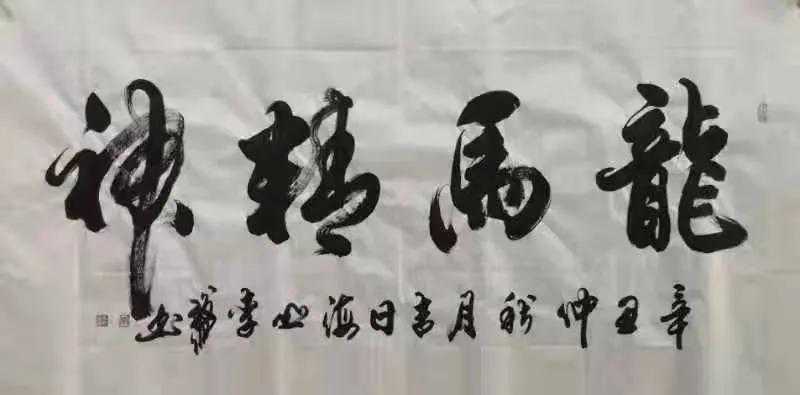 龍馬精神
辛丑仲秋月吉日海山李